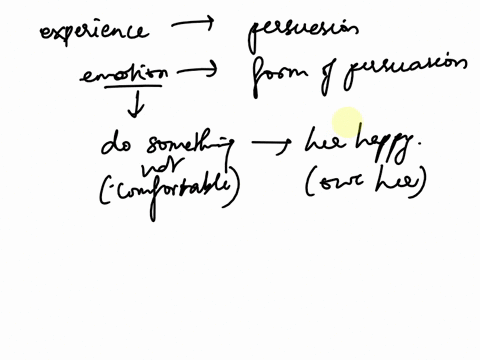 experience → persuasion
emotion → form of persuasion
↓
do something → her happy.
not
(comfortable) (owe her)